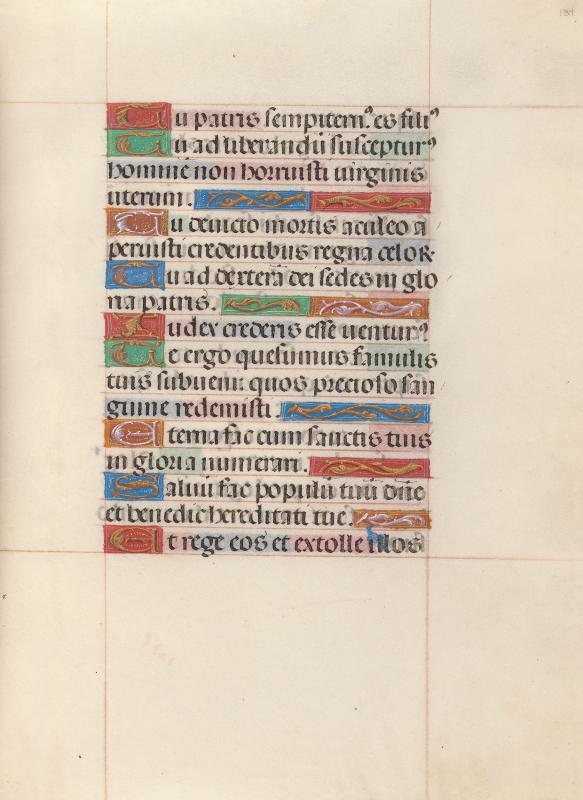 184
Tu patris sempitern⁹ es fili⁹
Tu ad liberandū susceptur⁹
hominē non horruisti virginis
uterum.
Tu devicto mortis aculeo a
peruisti credentibus regna celoꝝ
Tu ad dexterā dei sedes in glo
ria patris.
Iudex crederis esse uentur⁹
Te ergo quesumus famulis
tuis subueni: quos precioso san
guine redemisti.
Eterna fac cum sanctis tuis
in gloria numerari.
Saluū fac populū tuū dn̄e
et benedic hereditati tue.
Et rege eos et extolle illos